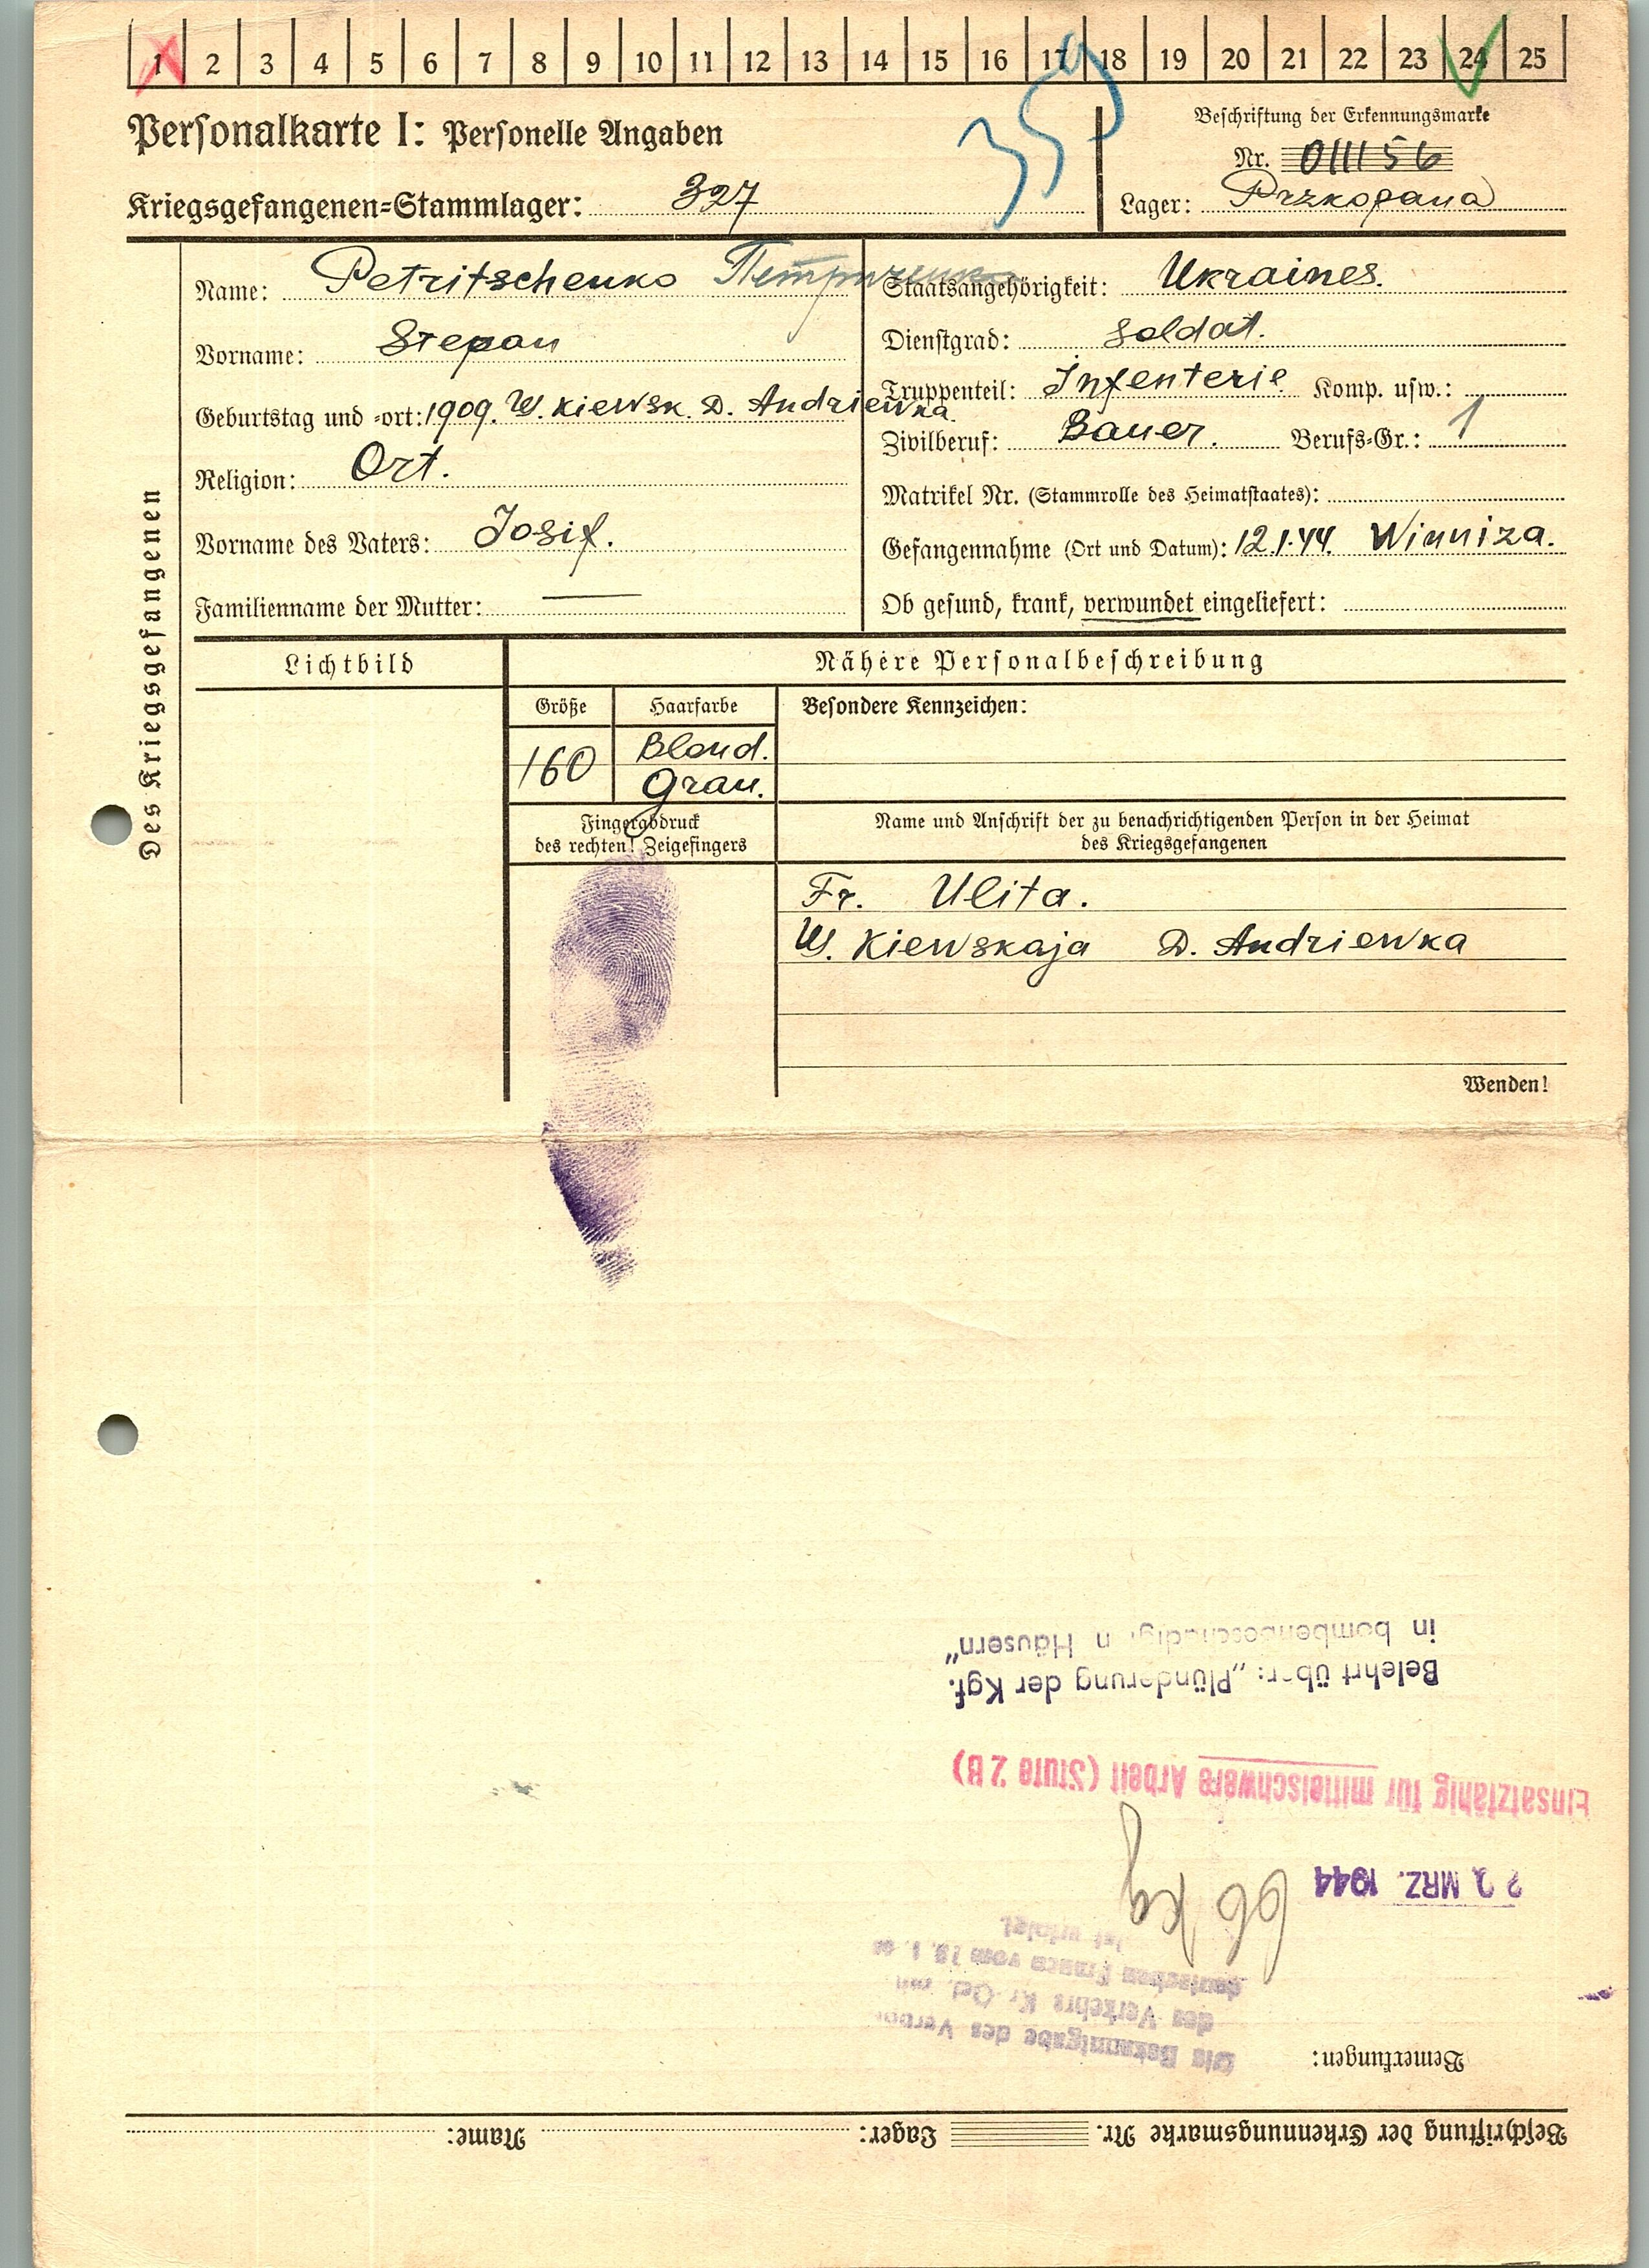 1 2 3 4 5 6 7 8 9 10 11 12 13 14 15 16 17 18 19 20 21 22 23 24 25
Personalkarte I: Personelle Angaben
Beschriftung der Erkennungsmarke
Nr. 011156
Kriegsgefangenen=Stammlager: 327
Lager: Przkopana
Des Kriegsgefangenen
Name: Petritschenko Петриченко
Vorname: Stepan
Geburtstag und =ort: 1909. W. Kiewsk. D. Andriewka
Religion: Ort.
Vorname des Vaters: Josif.
Familienname der Mutter: —
Staatsangehörigkeit: Ukraines.
Dienstgrad: Soldat.
Truppenteil: Infenterie Komp. usw.:
Zivilberuf: Bauer. Berufs=Gr.: 1
Matrikel Nr. (Stammrolle des Heimatstaates):
Gefangennahme (Ort und Datum): 12.1.44. Winniza.
Ob gesund, krank, verwundet eingeliefert:
Lichtbild
Nähere Personalbeschreibung
Größe
Haarfarbe
Besondere Kennzeichen:
160
Blond.
Grau.
Fingerabdruck
des rechten! Zeigefingers
Name und Anschrift der zu benachrichtigenden Person in der Heimat
des Kriegsgefangenen
Fr. Ulita.
W. Kiewskaja D. Andriewka
Wenden!
Beschriftung der Erkennungsmarke Nr. Lager: Name:
Bemerkungen:
Die Bekanntgabe des
des Verkehrs Kr. Gef. mit
deutschen Frauen vom
ist erfolgt.
MRZ. 1944
66 kg
Einsatzfähig für mittelschwere Arbeit (Stufe 2 B)
Belehrt über: „Plünderung der Kgf.
in bombenbeschädigten Häusern"